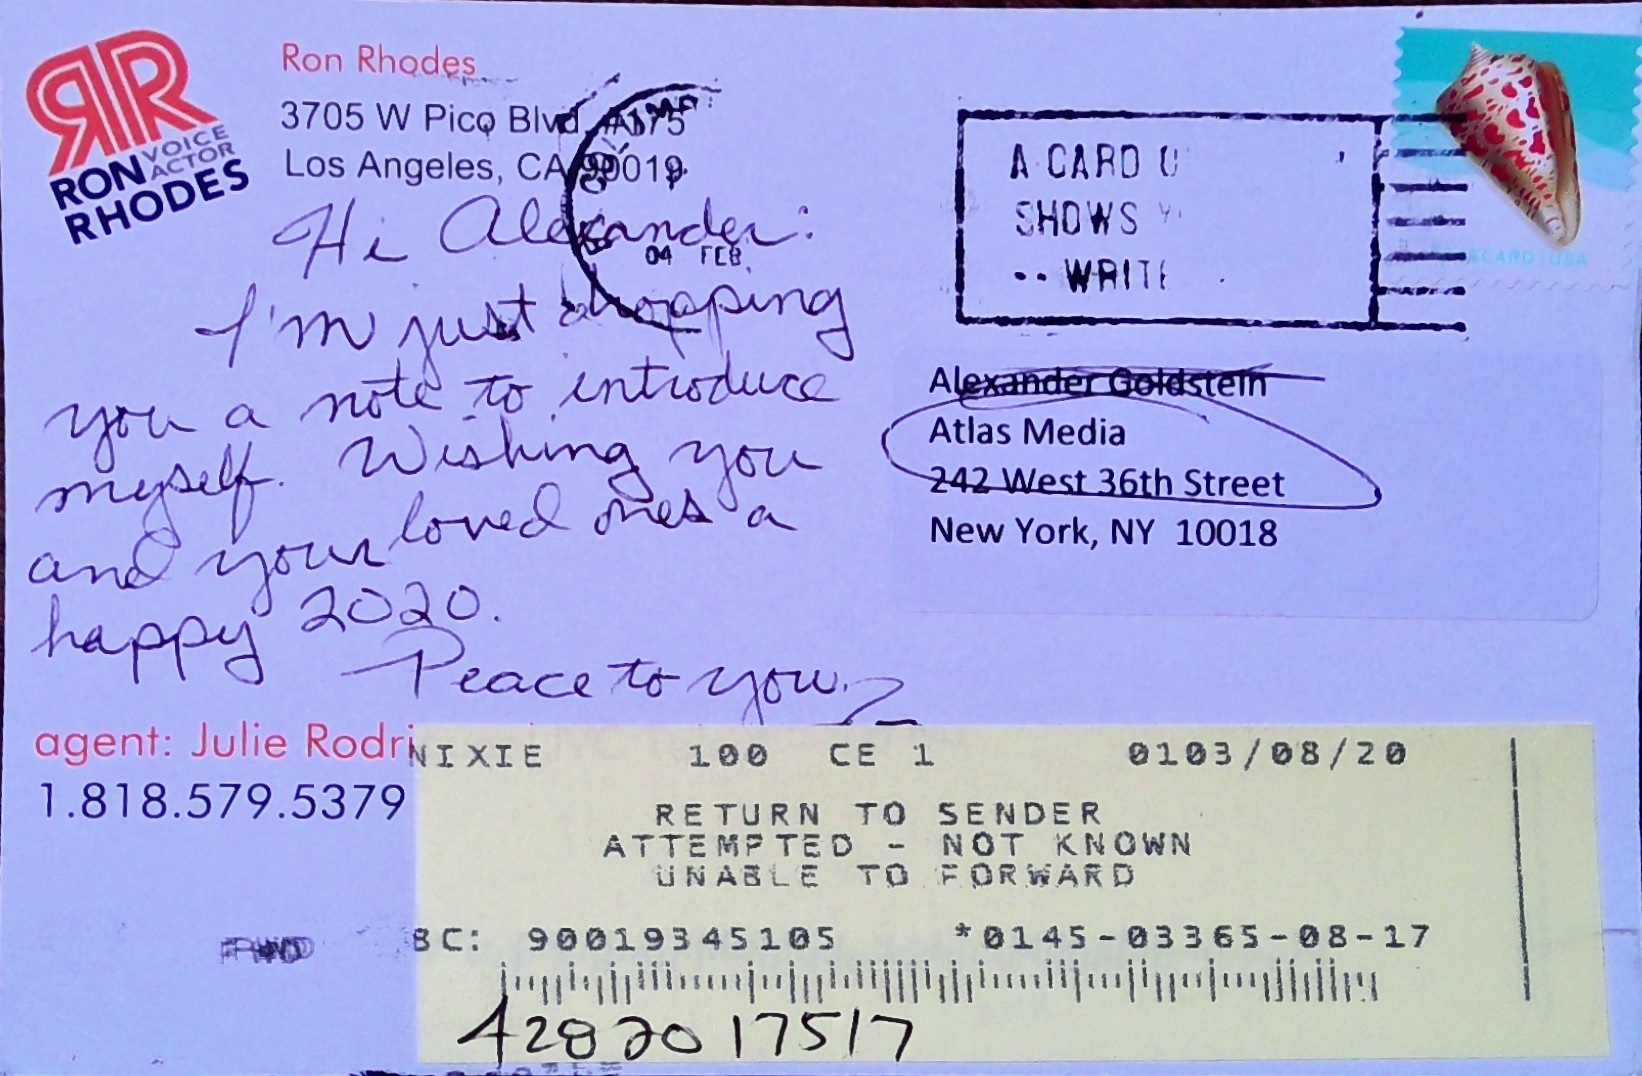 RR
RON VOICE
ACTOR
RHODES
Ron Rhodes
3705 W Pico Blvd, #175
Los Angeles, CA 90019
04 FEB
A CARD
SHOWS
-- WRITE
CARD USA
Hi Alexander:
I'm just dropping
you a note to introduce
myself. Wishing you
and your loved ones a
happy 2020.
Peace to you.
Alexander Goldstein
Atlas Media
242 West 36th Street
New York, NY 10018
agent: Julie Rodri
1.818.579.5379
NIXIE 100 CE 1 0103/08/20
RETURN TO SENDER
ATTEMPTED - NOT KNOWN
UNABLE TO FORWARD
BC: 90019345105 *0145-03365-08-17
4282017517